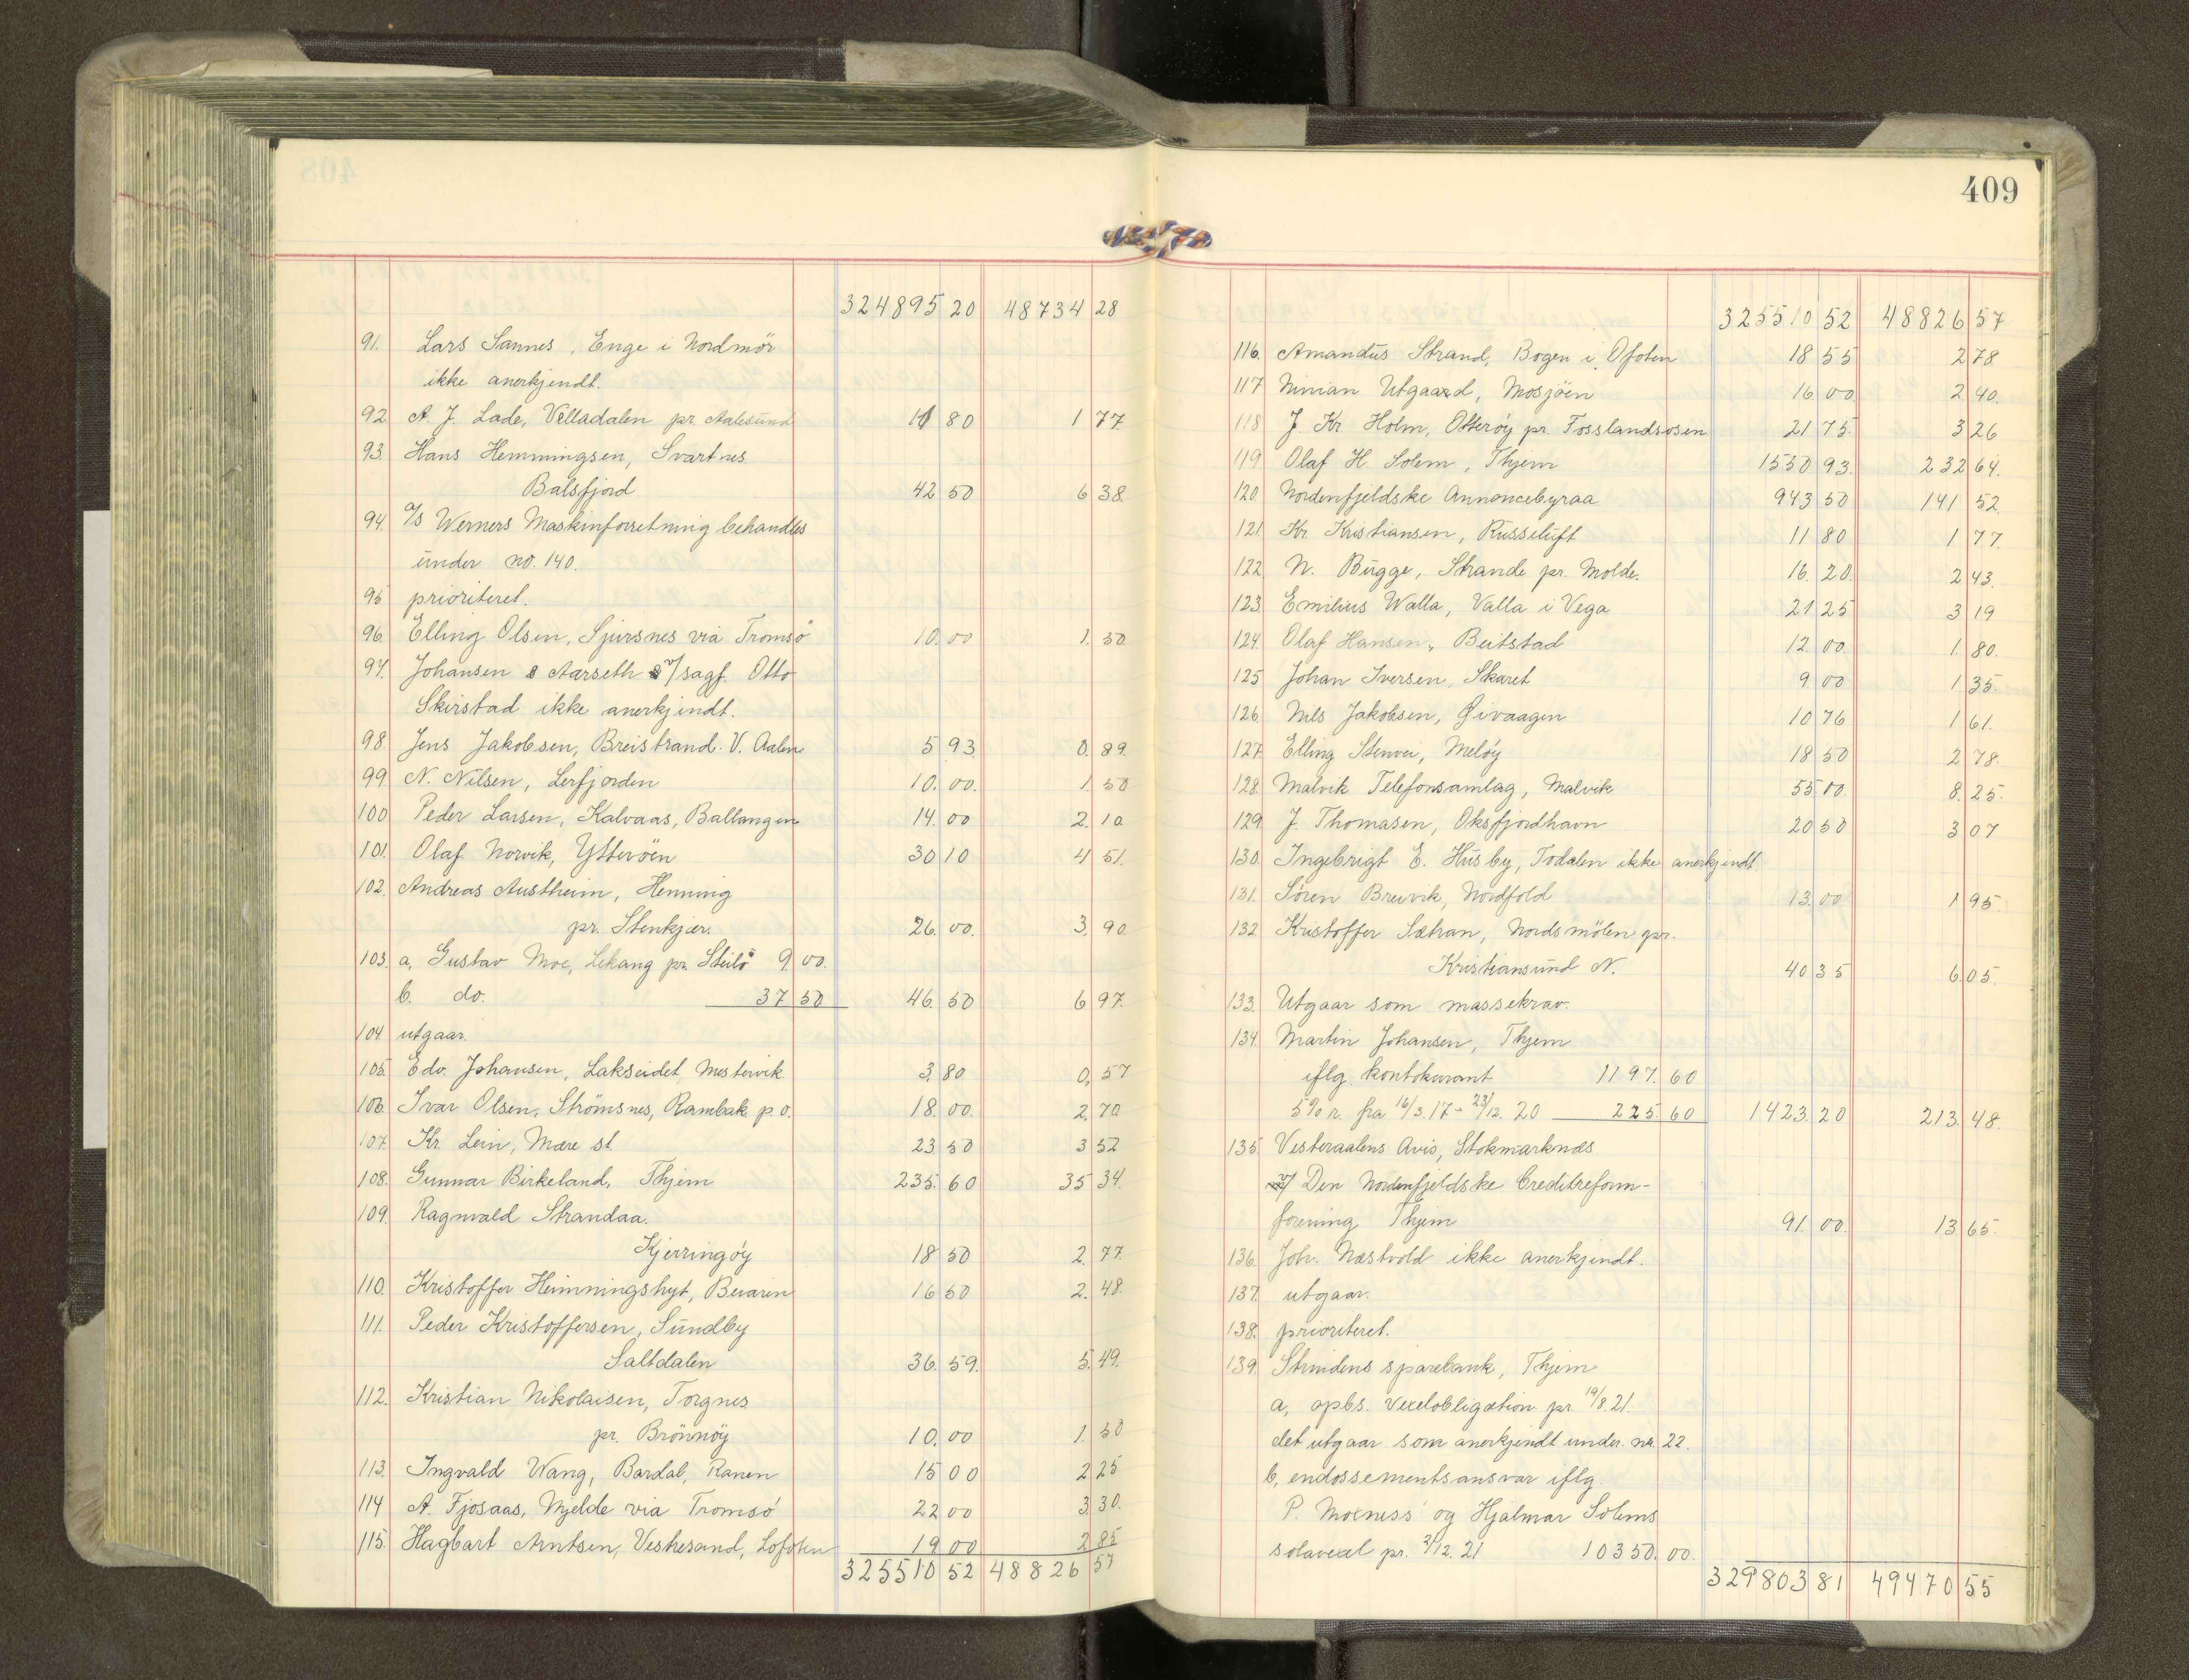 324895 20 48734 28
91. Lars Sannes, Enge i Nordmör
ikke anerkjendt.
92. A. J. Lade, Velladalen pr. Aalesund 11 80 1 77.
93. Hans Hemmingsen, Svartnes
Balsfjord 42 50 6 38
94. A/S Werners Maskinforretning behandles
under no. 140.
95 prioriteret.
96. Elling Olsen, Sjursnes via Tromsö 10.00 1.50
97. Johansen & Aarseth v/sagf. Otto
Skirstad ikke anerkjendt.
98. Jens Jakobsen, Breistrand. V. Aalen 5 93 0.89.
99 N. Nilsen, Lerfjorden 10.00. 1.50
100 Peder Larsen, Kalvaas, Ballangen 14.00 2.10
101. Olaf Norvik, Ytterøen 30 10 4 51.
102. Andreas Austheim, Henning
pr. Stenkjær. 26.00. 3.90
103. a, Gustav Moe, Lekang pr. Steilo 9.00.
b. do. 37 50 46.50 6 97.
104. utgaar.
105. Edv. Johansen, Lakseidet, Mestervik. 3.80 0,57
106. Ivar Olsen, Strömsnes, Rambak p.o. 18.00. 2.70
107. Kr. Lein, Mære st. 23.50 3 52
108. Gunnar Birkeland, Thjem 235.60 35 34.
109. Ragnvald Strandaa.
Kjerringöy 18 50 2.77.
110. Kristoffer Heimningshyt, Beiarn 16 50 2.48.
111. Peder Kristoffersen, Sundby
Saltdalen 36.59. 5.49.
112. Kristian Nikolaisen, Torgnes
pr. Brönnöy 10.00 1.50
113. Ingvald Wang, Bardal, Ranen 15 00 2 25
114 A. Fjosaas, Mjelde via Tromsö 22 00 3.30.
115. Hagbart Arntsen, Vestresand, Lofoten 19 00 2 85
325510 52 48826 57
409
325510 52 48826 57
116. Amandus Strand, Bogen i Ofoten 18 55 2 78
117 Ninian Utgaard, Mosjöen 16.00 2 40.
118 J. Kr. Holm, Otteröy pr. Fosslandsosen 21 75. 3 26
119 Olaf H. Solem, Thjem 1550 93. 232 64.
120. Nordenfjeldske Annoncebyraa 943 50 141 52.
121. Kr. Kristiansen, Russeluft 11 80 1 77.
122 N. Bugge, Strande pr. Molde. 16.20. 2 43.
123. Emilius Walla, Valla i Vega 21 25 3 19
124. Olaf Hansen, Beitstad 12.00. 1.80.
125 Johan Iversen, Skaret 9.00 1 35.
126. Nils Jakobsen, Givaagen 10 76 1 61.
127. Elling Stenvei, Melöy 18 50 2 78.
128. Malvik Telefonsamlag, Malvik 55 00. 8.25.
129. J. Thomasen, Oksfjordhavn 20 50 3 07
130. Ingebrigt E. Husby, Todalen ikke anerkjendt
131. Sören Breivik, Nordfold 13.00 1 95
132. Kristoffer Sætran, Nordsmölen pr.
Kristiansund N. 40 35 6.05.
133. Utgaar som massekrav.
134. Martin Johansen, Thjem
iflg. kontokurant 1197.60
5% r. fra 16/3.17 - 23/12.20 225.60 1423.20 213.48.
135. Vesteraalens Avis, Stokmarknæs
v/ Den Nordenfjeldske Creditreform-
forening Thjem 91.00. 13 65.
136. Joh. Næstvold ikke anerkjendt.
137. utgaar.
138. prioriteret.
139. Strindens sparebank, Thjem
a, opbs. Vexelobligation pr. 19/8.21.
det utgaar som anerkjendt under nr. 22.
b, endossementsansvar iflg.
P. Moeness og Hjalmar Solems
solavexel pr. 2/12.21 10350.00.
329803 81 49470 55